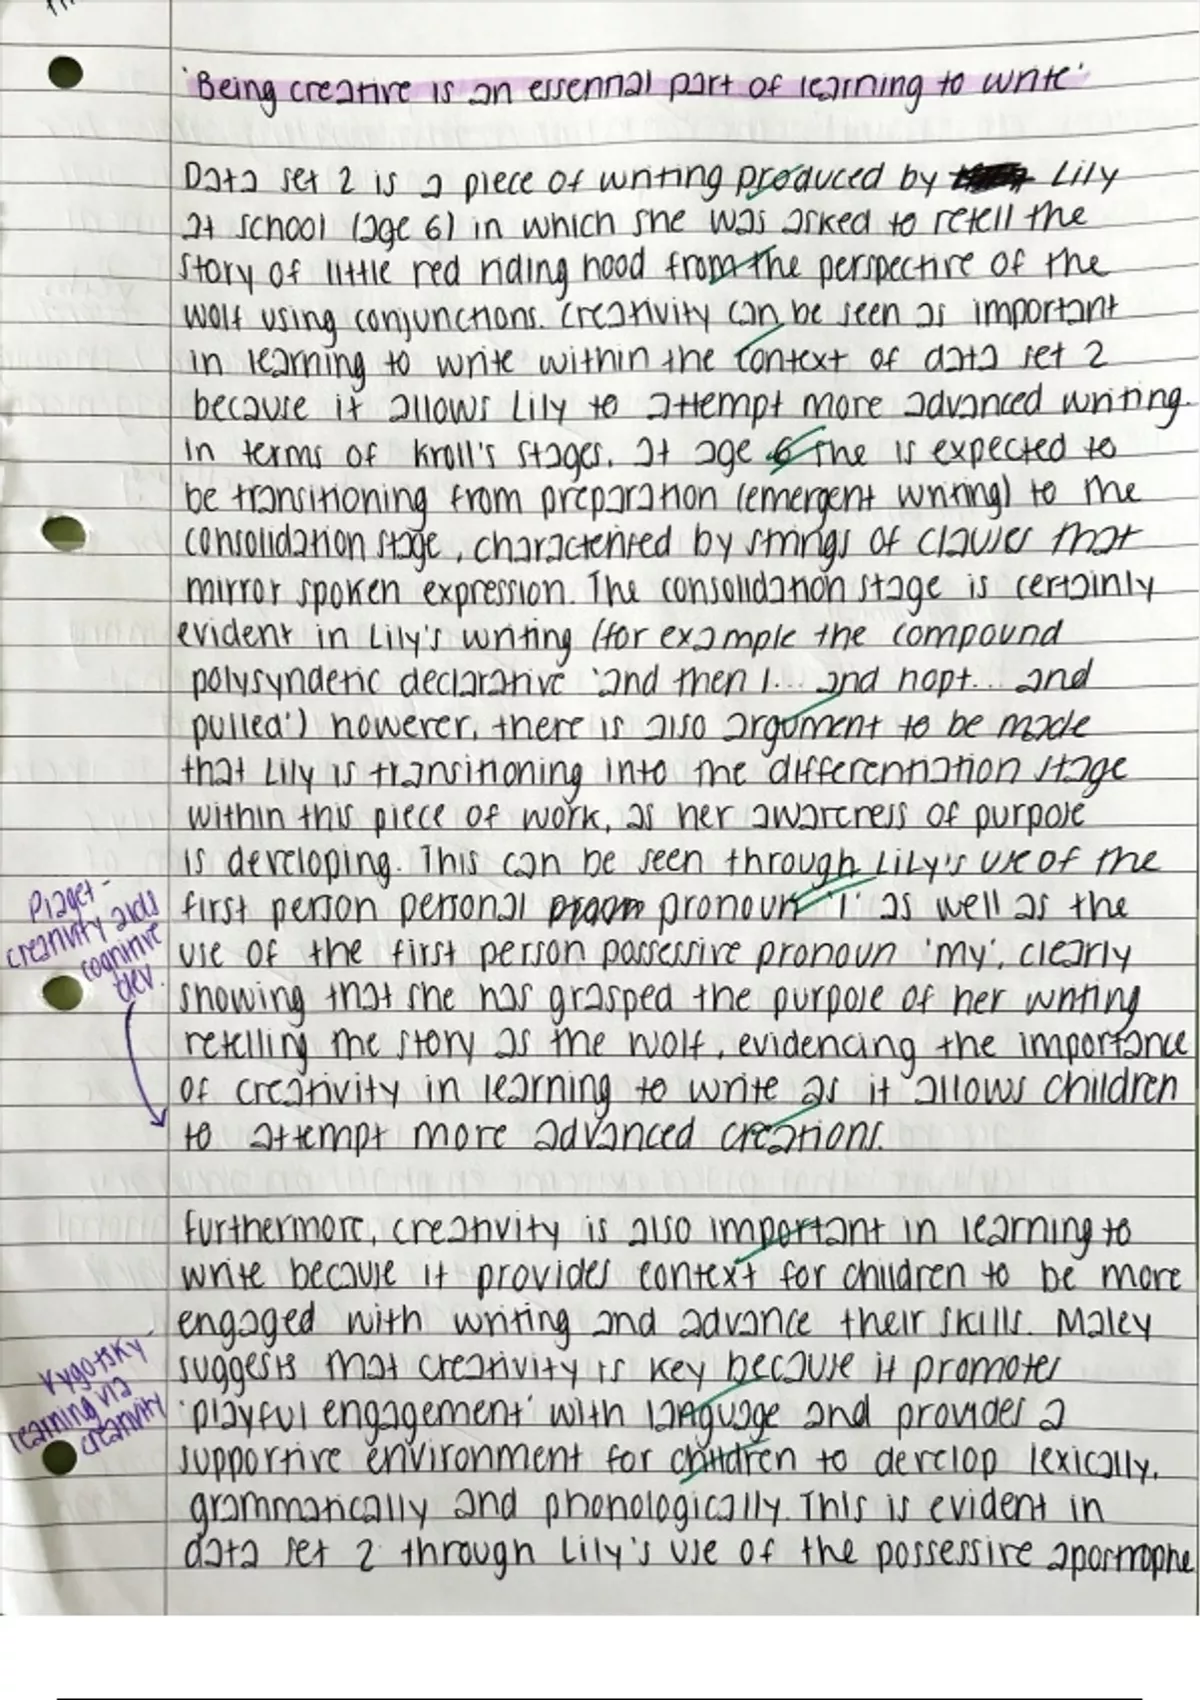 'Being creative is an essential part of learning to write'
Data set 2 is a piece of writing produced by Lily
at school (age 6) in which she was asked to retell the
story of little red riding hood from the perspective of the
wolf using conjunctions. Creativity can be seen as important
in learning to write within the context of data set 2
because it allows Lily to attempt more advanced writing.
In terms of Kroll's stages, at age 6 she is expected to
be transitioning from preparation (emergent writing) to the
consolidation stage, characterised by strings of clauses that
mirror spoken expression. The consolidation stage is certainly
evident in Lily's writing (for example the compound
polysyndetic declarative 'and then I... and hopt... and
pulled') however, there is also argument to be made
that Lily is transitioning into the differentiation stage
within this piece of work, as her awareness of purpose
is developing. This can be seen through Lily's use of the
Piaget -
creativity aids
cognitive
dev.
first person personal pronoun 'I' as well as the
use of the first person possessive pronoun 'my', clearly
showing that she has grasped the purpose of her writing
retelling the story as the wolf, evidencing the importance
of creativity in learning to write as it allows children
to attempt more advanced creations.
Furthermore, creativity is also important in learning to
write because it provides context for children to be more
engaged with writing and advance their skills. Maley
suggests that creativity is key because it promotes
Vygotsky -
learning via
creativity
'playful engagement' with language and provides a
supportive environment for children to develop lexically,
grammatically and phonologically. This is evident in
data set 2 through Lily's use of the possessive apostrophe